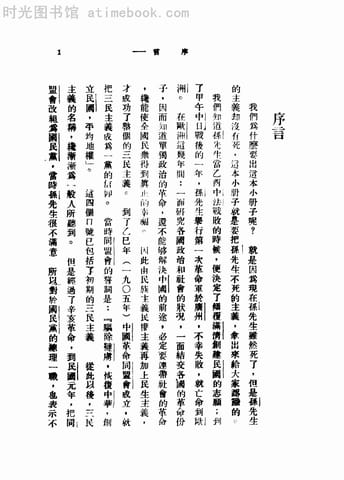 时光图书馆 - atimebook.com
序言 一 1
序言
我們爲什麼要出這本小册子呢？就是因爲現在孫先生雖然死了，但是孫先生
的主義却沒有死，這本小册子就是要把孫先生不死的主義，拿出來給大家認識的。
我們知道孫先生當乙酉中法戰敗的時候，便決定了傾覆滿清創建民國的志願；到
了甲午中日戰後的一年，孫先生舉行第一次革命軍於廣州，不幸失敗，就亡命到歐
洲。在歐洲這幾年間：一面研究各國政治和社會的狀況，一面結交各國的革命份
子，因而知道單獨政治的革命，還不能够解決中國的前途，必定要連帶社會的革命
，纔能使全國民衆得到眞正的幸福。因此由民族主義民權主義再加上民生主義，
才成功了整個的三民主義。到了乙巳年（一九〇五年）中國革命同盟會成立，就
把三民主義成爲一黨的信仰。當時同盟會的誓詞是：『驅除韃虜，恢復中華，創
立民國，平均地權』。這四個口號已包括了初期的三民主義 從此以後，三民
主義的名稱，纔漸漸爲一般人所聽到。但是經過了辛亥革命，到民國元年，把同
盟會改組爲國民黨，當時孫先生很不滿意 所以對於國民黨的總理一職，也表示不